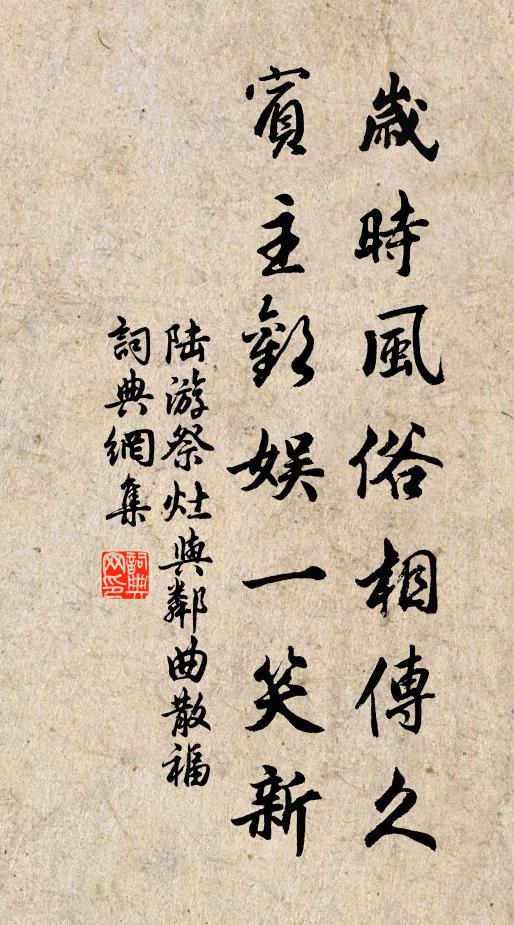 歲時風俗相傳久
賓主歡娛一笑新
陸游祭灶與鄰曲散福
詞典網集
詞典网印